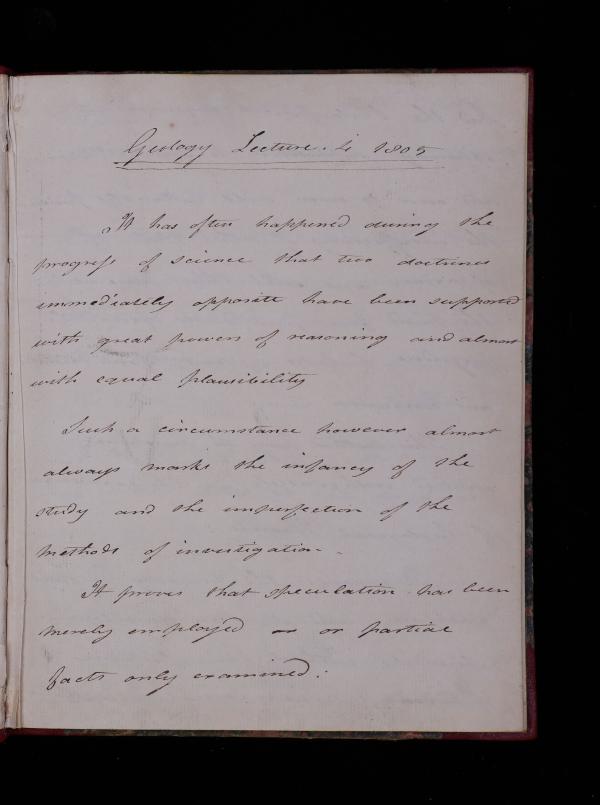 Geology Lecture. 4 1805
It has often happened during the
progress of science that two doctrines
immediately opposite have been supported
with great powers of reasoning and almost
with equal plausibility
Such a circumstance however almost
always marks the infancy of the
study and the imperfection of the
methods of investigation.
It proves that speculation has been
merely employed or partial
facts only examined.